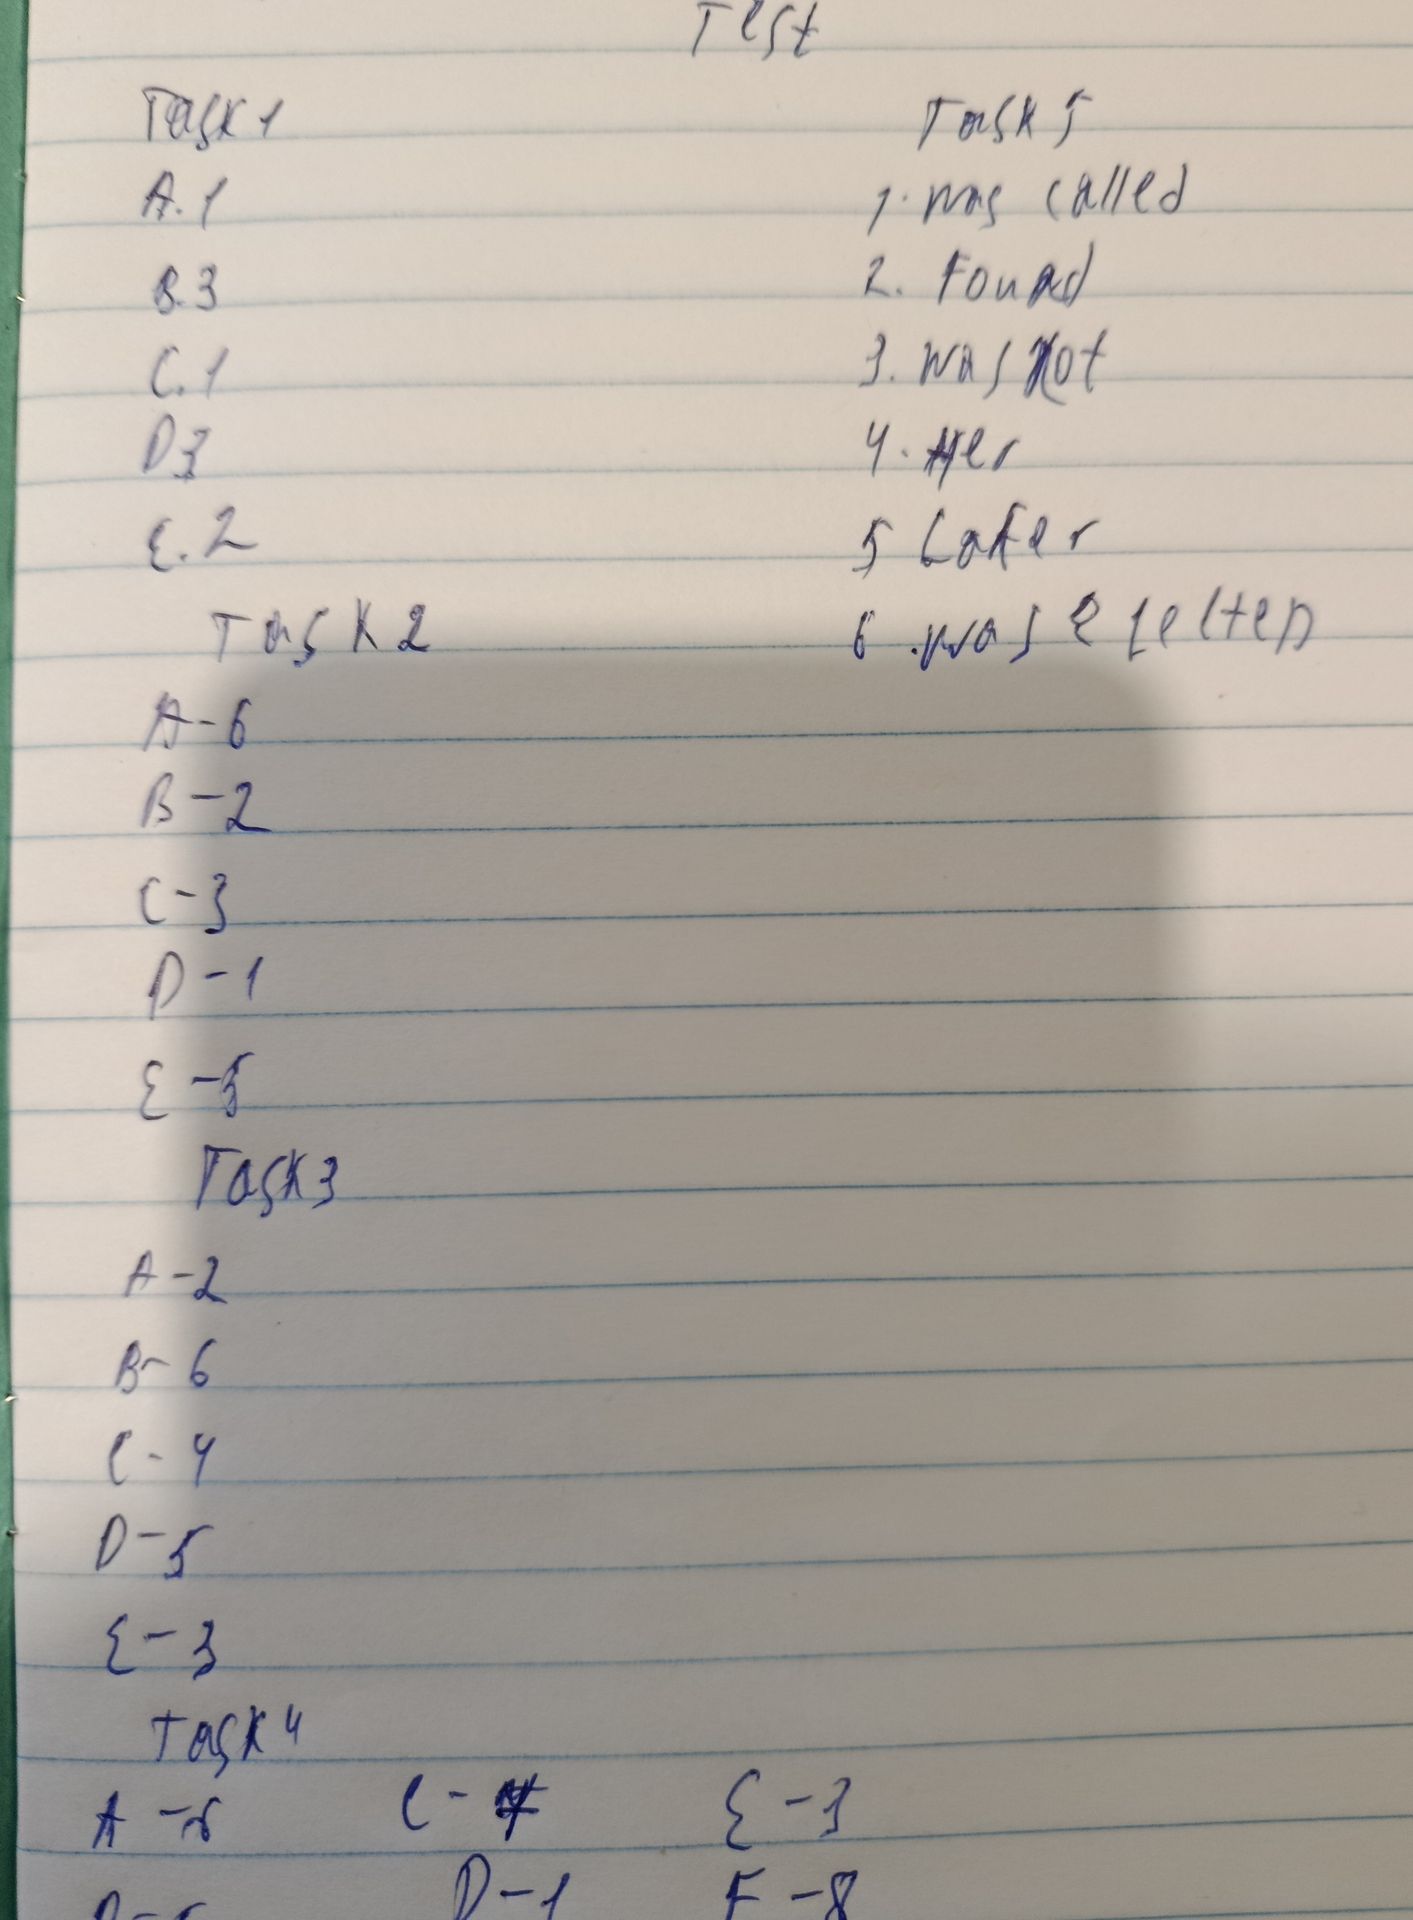 Test
Task 1
A. 1
B. 3
C. 1
D 3
E. 2
Task 2
A - 6
B - 2
C - 3
D - 1
E - 5
Task 3
A - 2
B - 6
C - 4
D - 5
E - 3
Task 4
A -
C - 7
E - 3
D - 1
F - 8
Task 5
1. was called
2. Found
3. was not
4. Her
5 Later
6. was